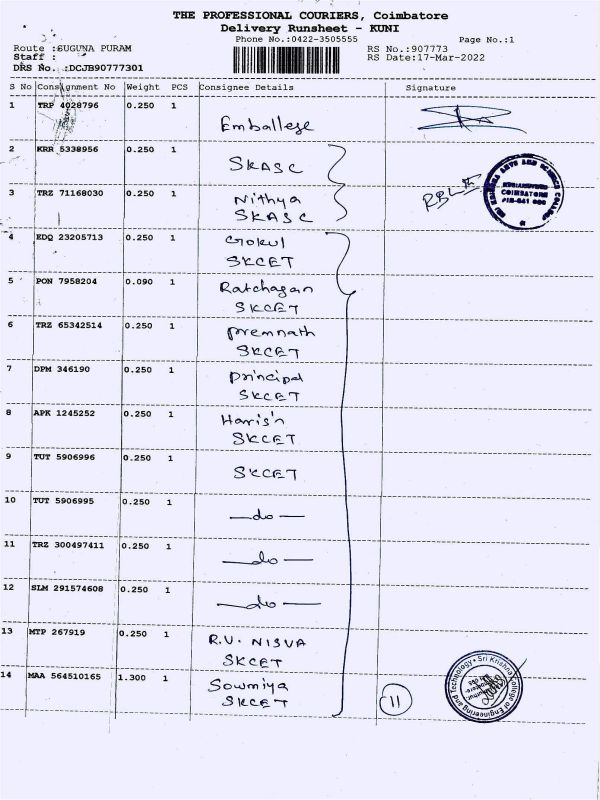 THE PROFESSIONAL COURIERS, Coimbatore
Delivery Runsheet - KUNI
Phone No.:0422-3505555 Page No.:1
Route :SUGUNA PURAM RS No.:907773
Staff : RS Date:17-Mar-2022
DRS No. :DCJB90777301
S No Consignment No Weight PCS Consignee Details Signature
1 TRP 4028796 0.250 1
Emballege
2 KRR 5338956 0.250 1
SKASC
3 TRZ 71168030 0.250 1 Nithya
SKASC
4 EDQ 23205713 0.250 1 Gokul
SKCET
5 PON 7958204 0.090 1 Ratchagan
SKCET
6 TRZ 65342514 0.250 1 premnath
SKCET
7 DPM 346190 0.250 1 principal
SKCET
8 APK 1245252 0.250 1 Harish
SKCET
9 TUT 5906996 0.250 1
SKCET
10 TUT 5906995 0.250 1
—do—
11 TRZ 300497411 0.250 1
—do—
12 SLM 291574608 0.250 1
—do—
13 MTP 267919 0.250 1 R.V. NISVA
SKCET
14 MAA 564510165 1.300 1 Sowmiya
SKCET
11
SRI KRISHNA ARTS AND SCIENCE COLLEGE
COIMBATORE
Sri Krishna College of Engineering and Technology